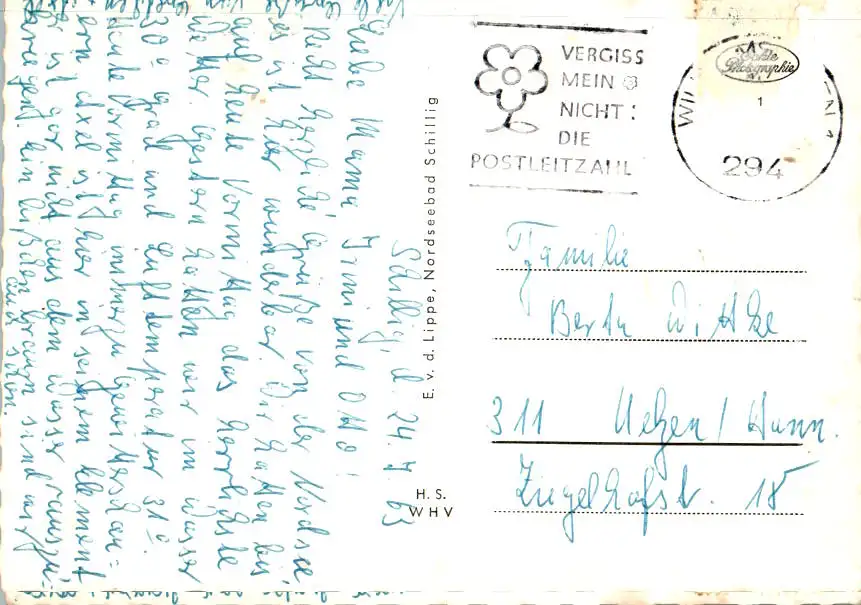 Schillig, d. 24.7.63
Liebe Mama, Irmi und Otto!
Recht herzliche Grüße von der Nordsee
Es ist hier wunderbar. Wir hatten bis
auf heute Vormittag das herrlichste
Wetter. Gestern hatten wir im Wasser
30° und Lufttemperatur 31°.
Heute Vormittag Gewitterschau=
ern. Axel ist hier in seinem Element
Er ist gar nicht aus dem Wasser rauszu=
Ein bißchen braun sind wir
auch schon.
E. v. d. Lippe, Nordseebad Schillig
H. S.
WHV
VERGISS
MEIN
NICHT:
DIE
POSTLEITZAHL
Echte
Photographie
1
294
Familie
Berta Wittke
311 Uelzen/Hann.
Ziegelhofstr. 18